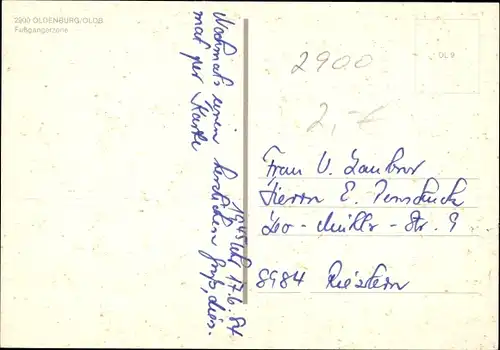 2900 OLDENBURG/OLDB
Fußgängerzone
Nochmals einen herzlichen Gruß, dies-
mal per Karte
19.45 Uhr 17.6.84
2900
2,-€
OL 9
Frau V.
Herrn E.
Leo - Müller - Str. 9
8984 Riezlern